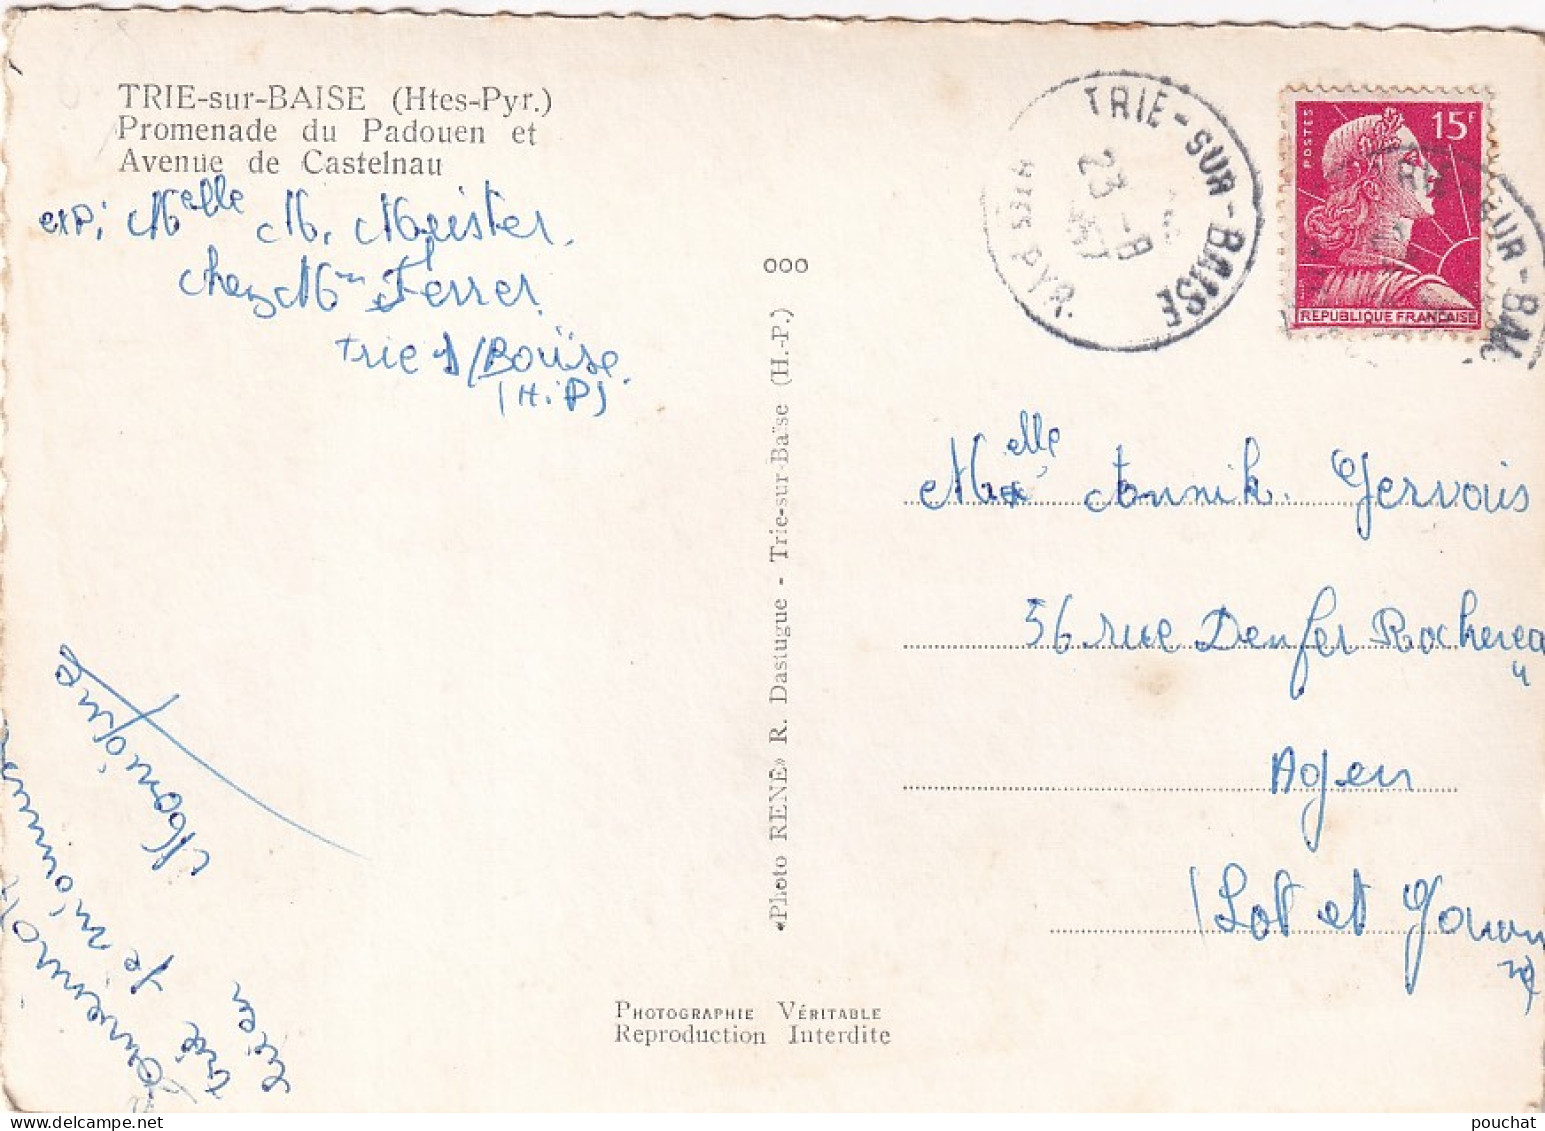 TRIE-sur-BAISE (Htes-Pyr.)
Promenade du Padouen et
Avenue de Castelnau
exp; Melle M. Meister.
chez Mme Ferrer
trie s/Boïse.
(H.P)
Monique
je m'ennuie
bien
ooo
«Photo RENE» R. Dastugue - Trie-sur-Baïse (H.-P.)
PHOTOGRAPHIE VÉRITABLE
Reproduction Interdite
TRIE-SUR-BAISE
23-8
HTES PYR.
POSTES
15F
REPUBLIQUE FRANCAISE
Melle Annik. Gervois
56 rue Denfer Rocherea
u
Agen
(Lot et Garonn
pouchat